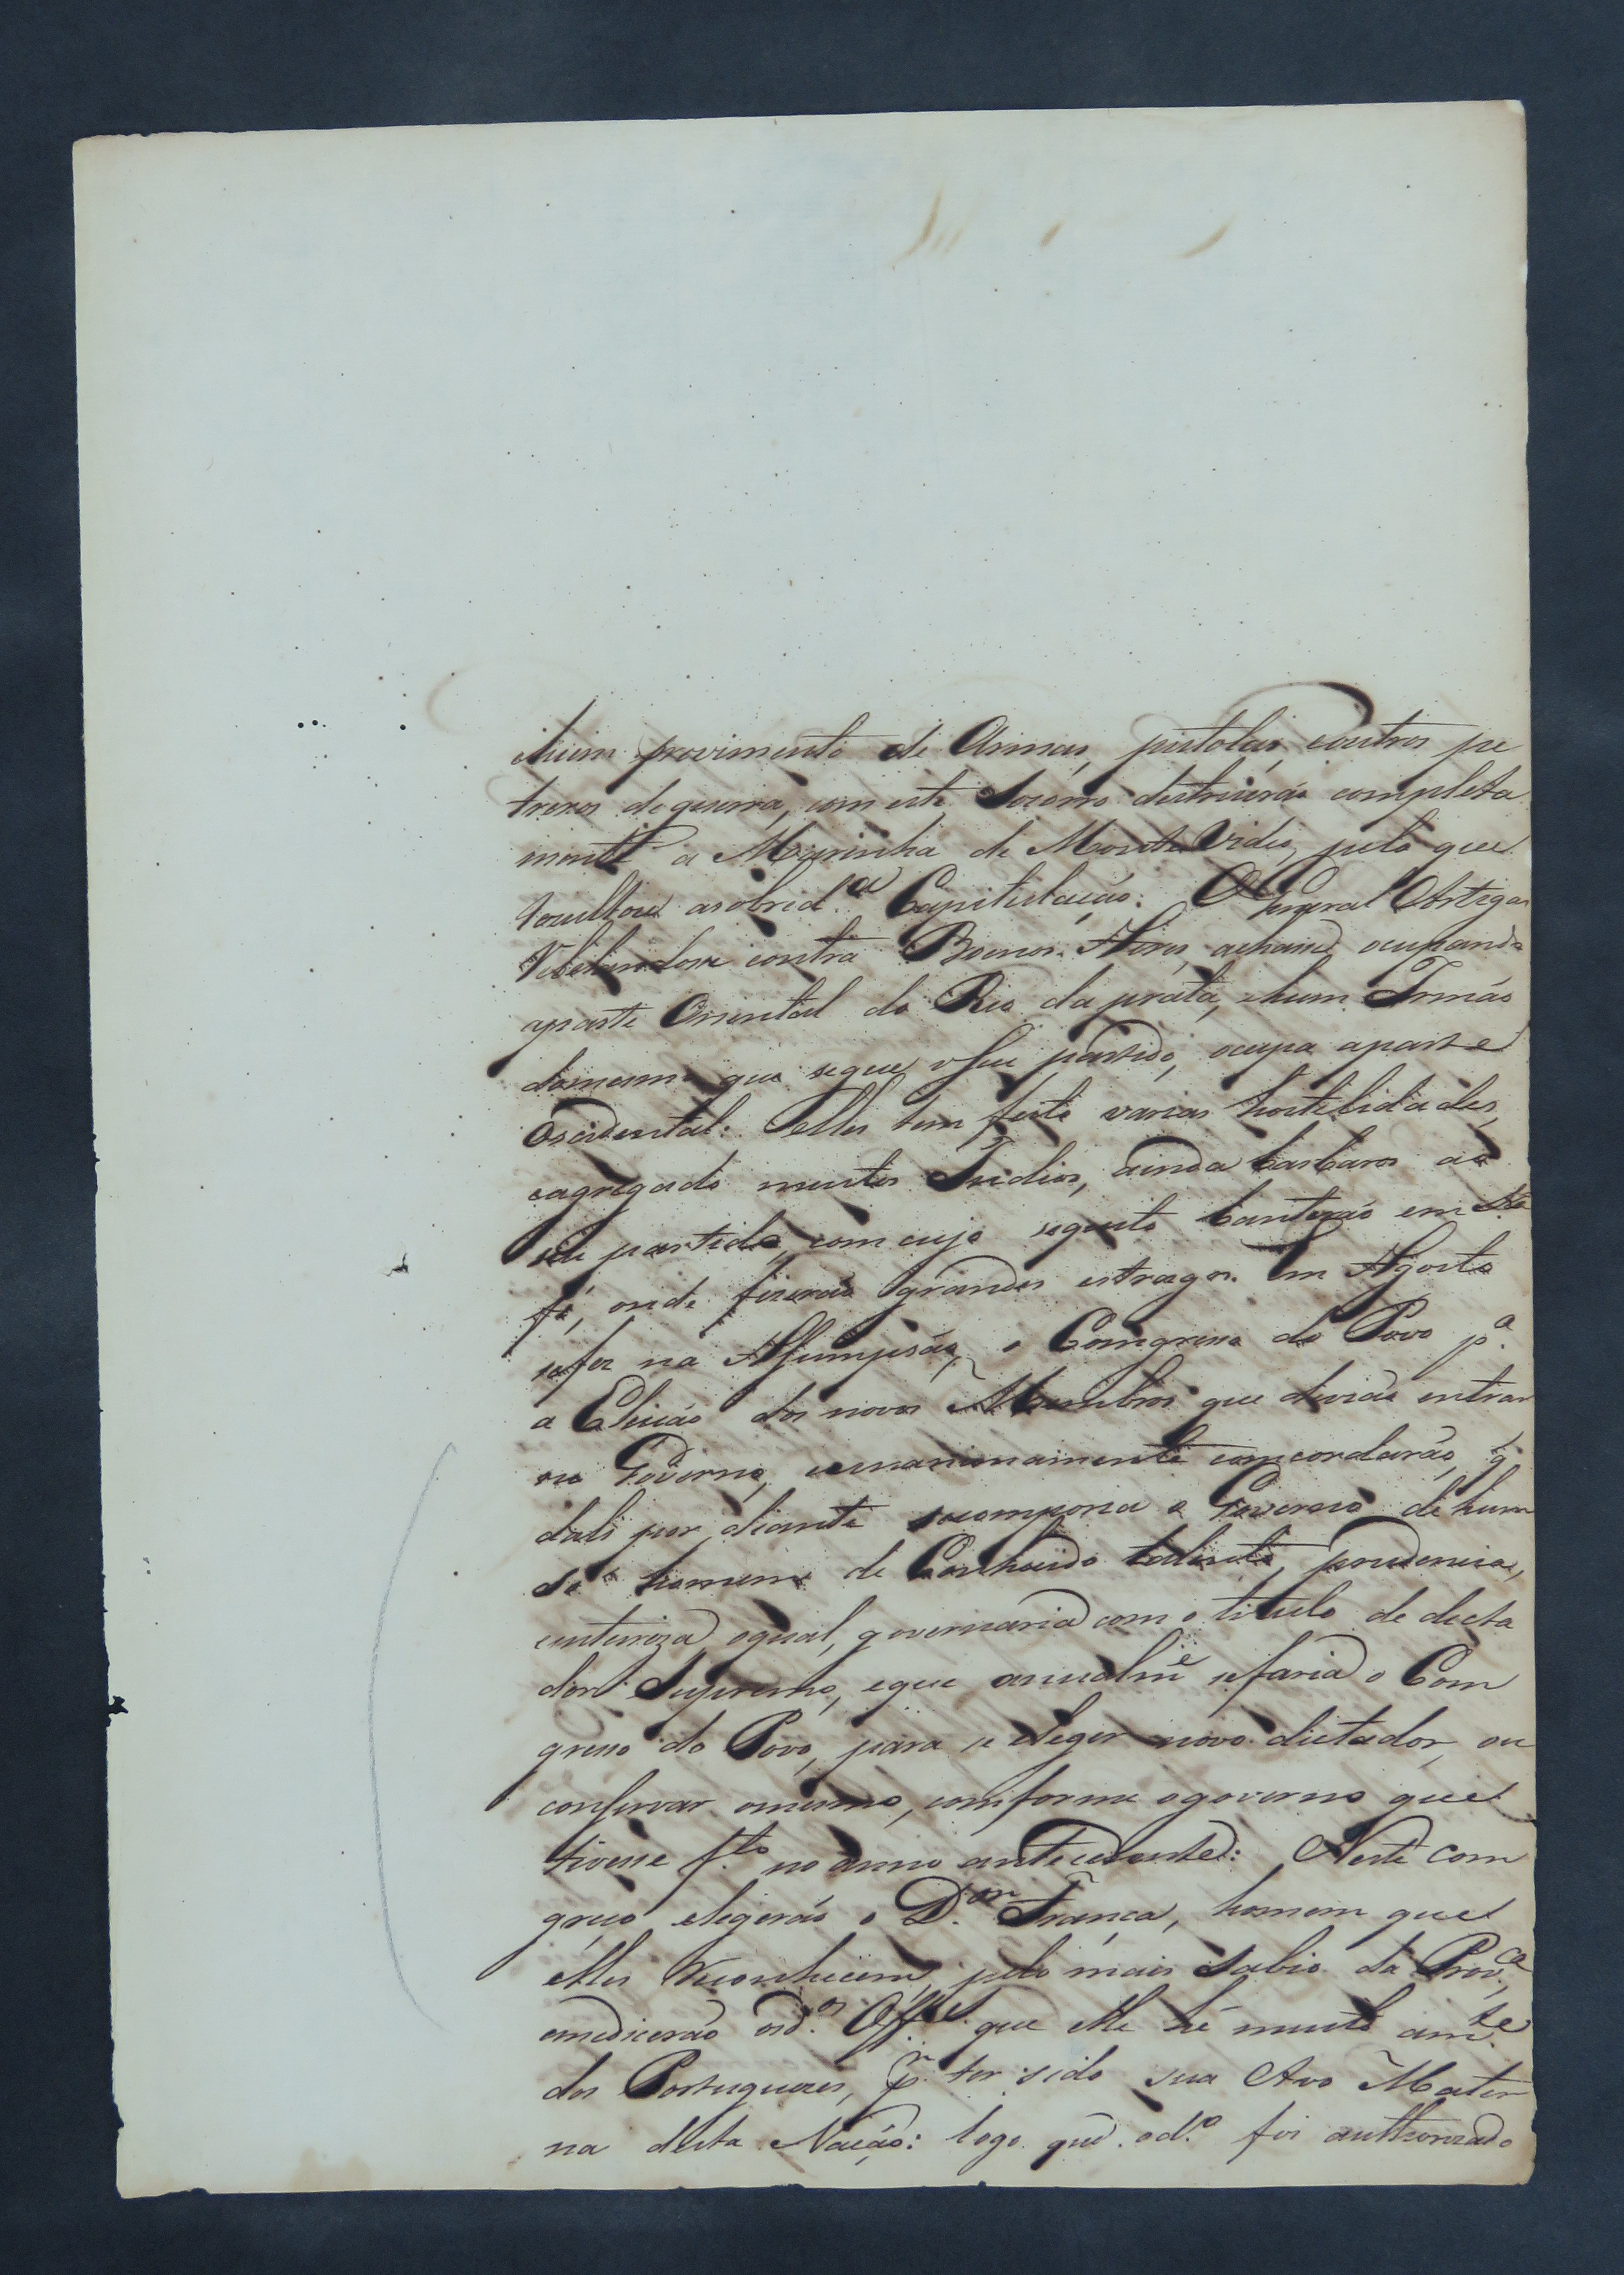 ehum provimento de Armas, pistolas, eoutros pe
trexos de guerra, com este Socorro destruirão completa
mente a Marinha de MonteVidio, pelo que
rezultou asobred.ª Capitulação. O General Artigas
Rebelandose contra Boenos Aires, achase ocupando
aparte Oriental do Rio da prata, ehum Irmão
domesmo que segue oseu partido, ocupa aparte
Oscidental: elles tem feito varias hostelidades,
eagregado muitos Indios, ainda barbaros ao
seu partido, com cujo sequito banterão em Sta
fé, onde fizerão grandes estragos. Em Agosto
sefez na Assumpsão, o Comgreso do Povo p.ª
a Eleicão dos novos Membros que devião entrar
no Governo, eunanimamente comcordarão, q̃
dali por diante secomporia o Governo de hum
só homem de Conhecido talento, prudencia,
einteireza, oqual, governaria com o titulo de decta
dor Supremo, eque anualm̃e sefaria o Com
greso do Povo, para se eleger novo dictador, ou
conservar omesmo, comforme ogoverno que
tivese f.to no anno antecedente: Neste com
greso elegerão o D.or França, homem que
elles Reconhecem, pelo mais Sabio da Prov.ca
emedicerão osd.os Off.es que elle hé muito am.te
dos Portuguezes, p.r ter sido sua Avo Mater
na desta Nacão: logo que od.o foi authorizado